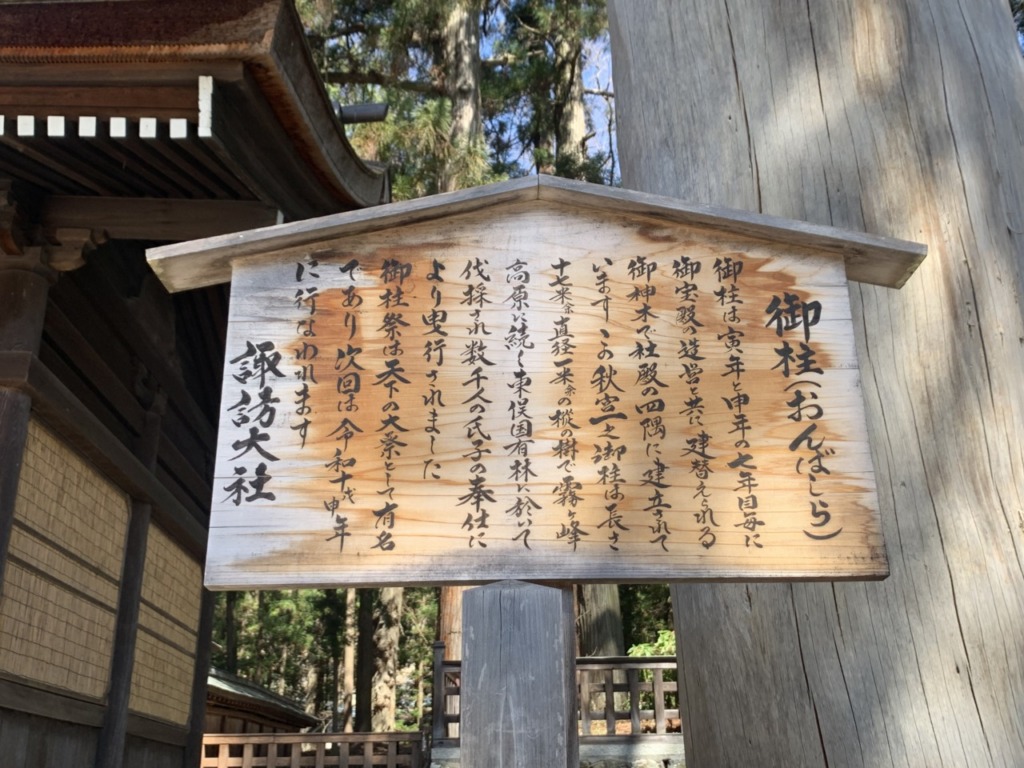 御柱(おんばしら)
御柱は寅年と申年の七年目毎に
御宝殿の造営と共に建替えられる
御神木で社殿の四隅に建立されて
います この秋宮一之御柱は長さ
十七米余直径一米余の樅の樹で霧ヶ峰
高原に続く東俣国有林に於いて
伐採され数千人の氏子の奉仕に
より曳行されました
御柱祭は天下の大祭として有名
であり次回は令和十戊申年
に行なわれます
諏訪大社